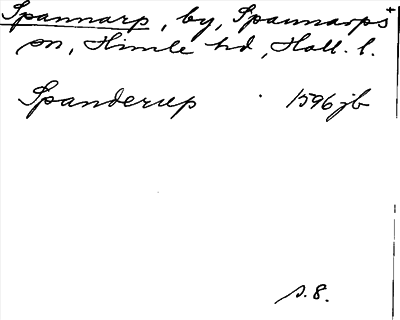 Spannarp, by, Spannarps+
sn, Himle hd, Hall. l.
Spanderup 1596 jb
s. 8.